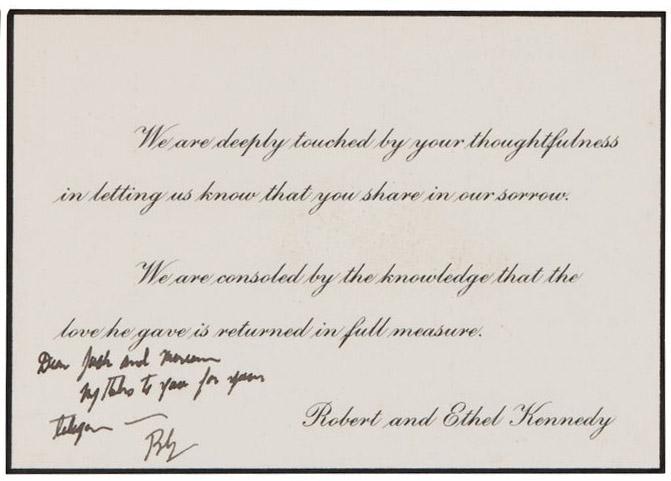 We are deeply touched by your thoughtfulness
in letting us know that you share in our sorrow.
We are consoled by the knowledge that the
love he gave is returned in full measure.
Dear Jack and
My thks to you for your
telegram —
Robert and Ethel Kennedy